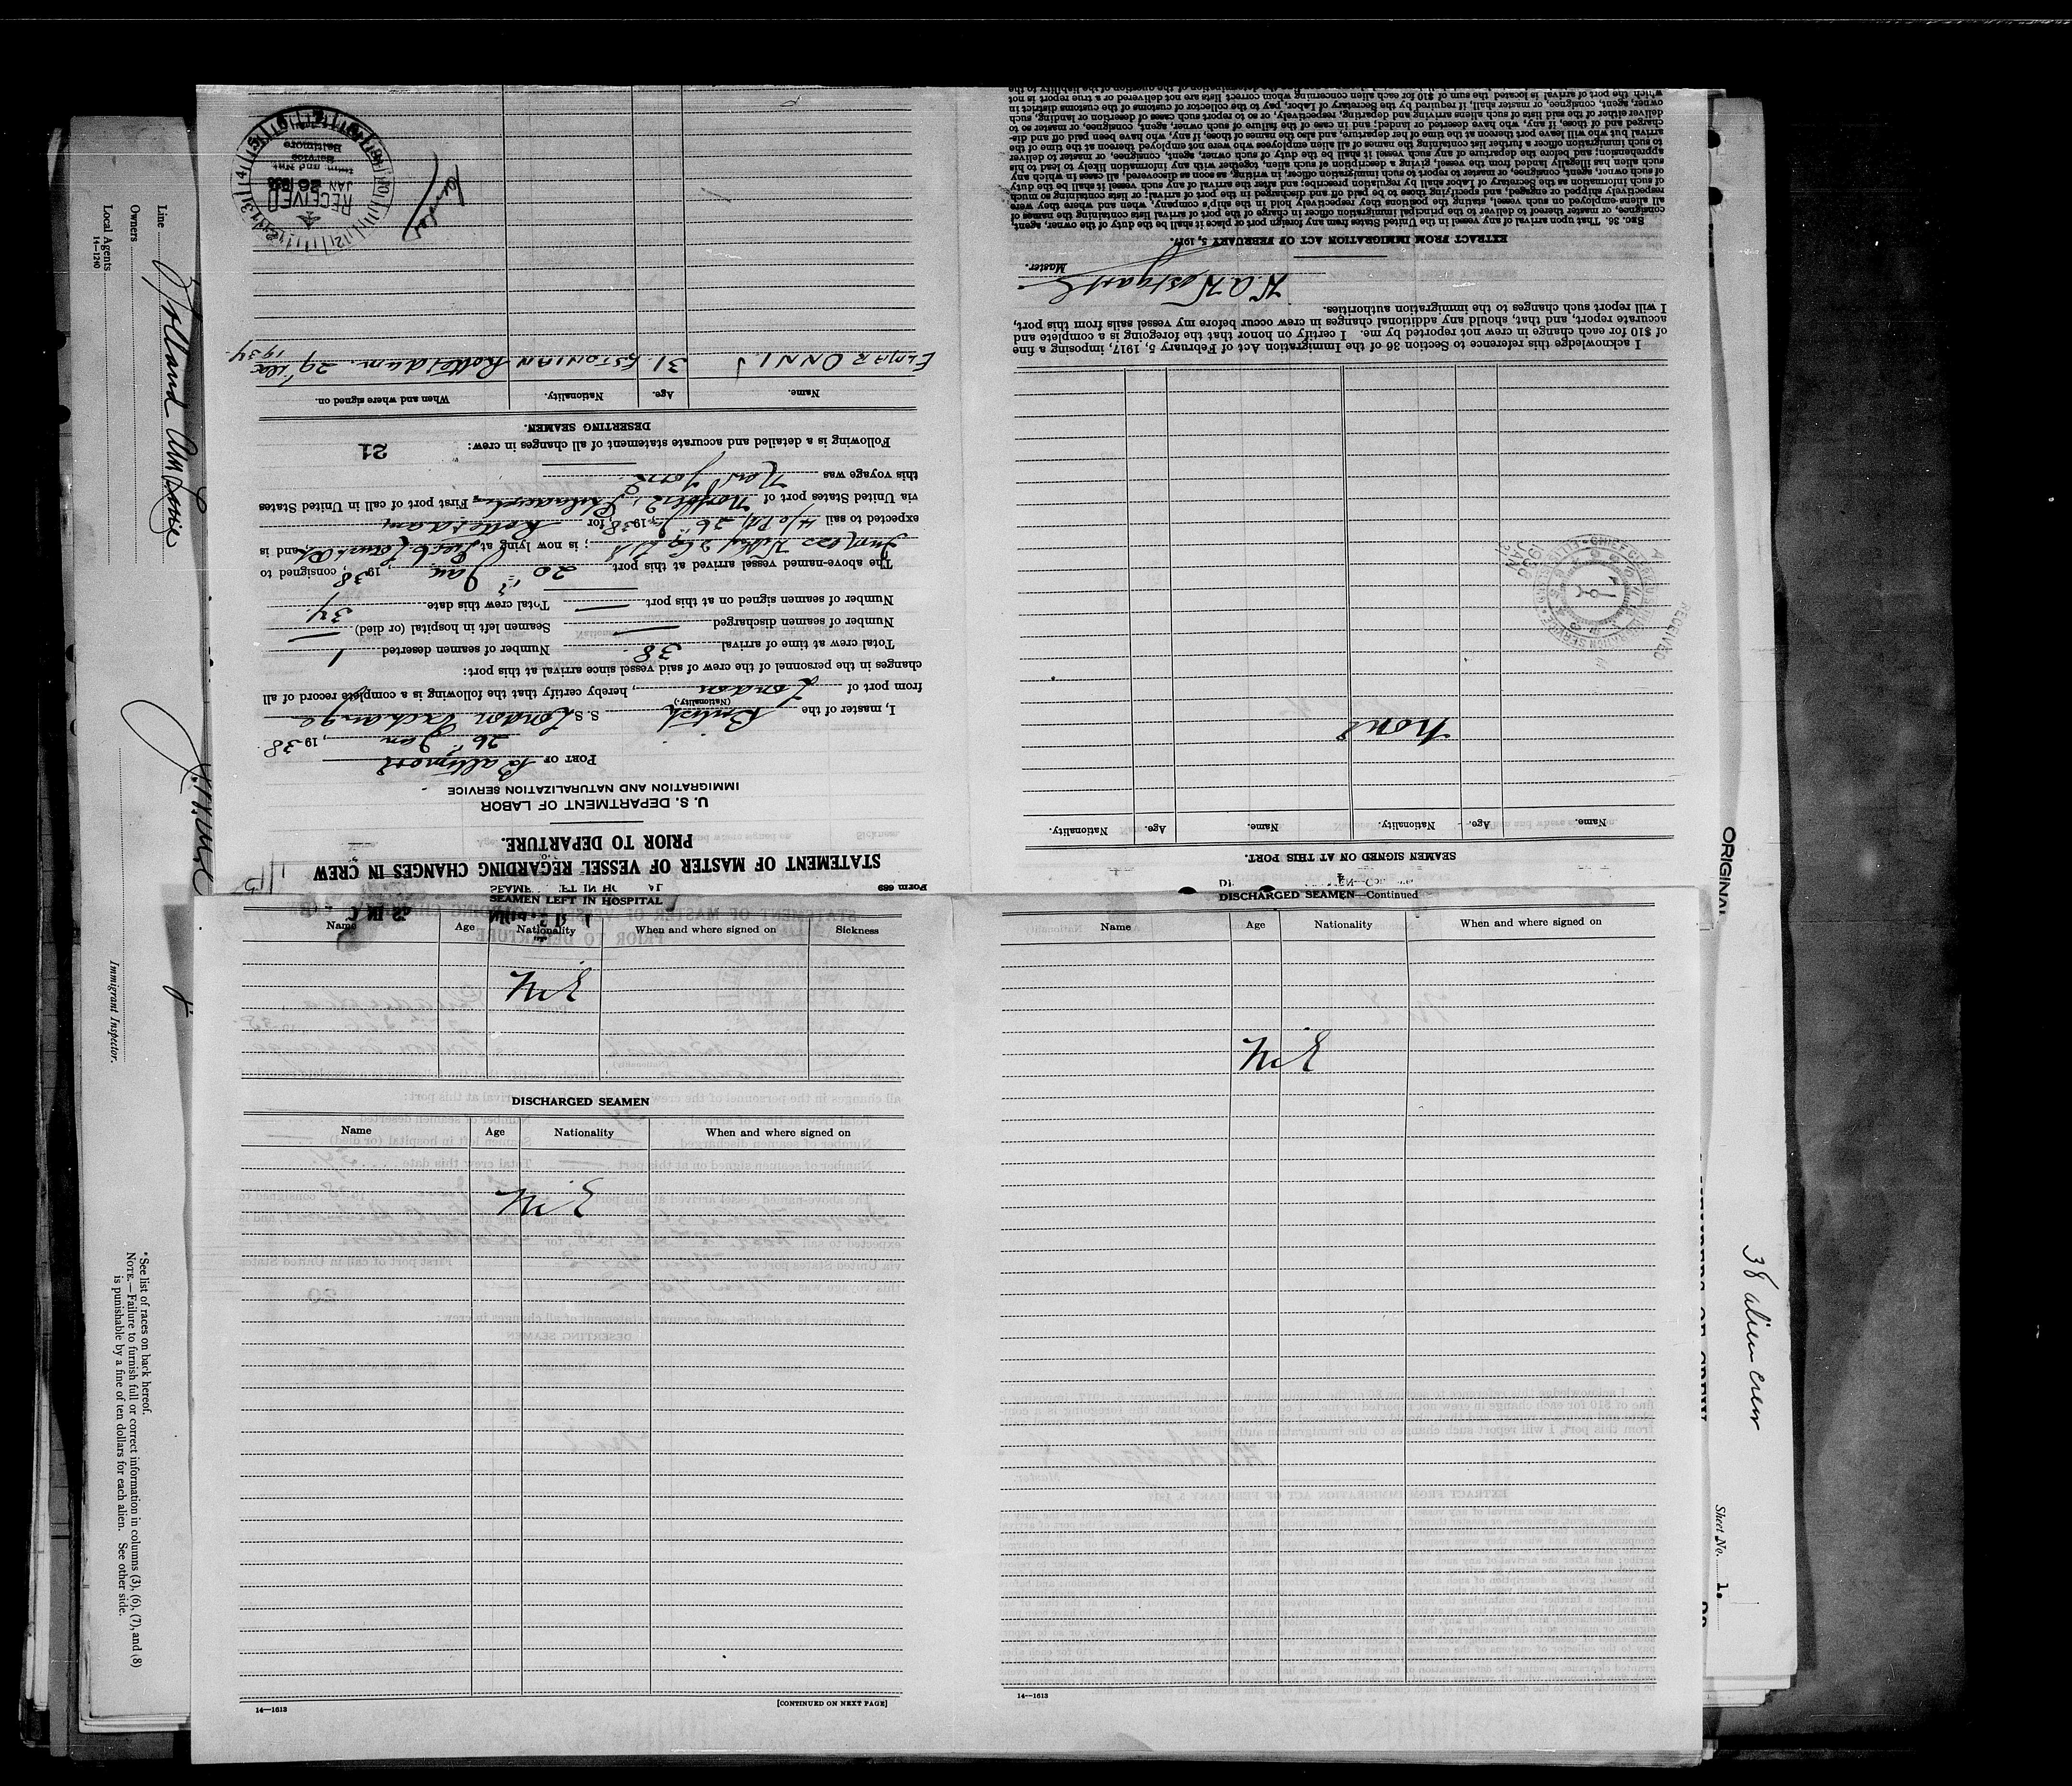 Form 689
STATEMENT OF MASTER OF VESSEL REGARDING CHANGES IN CREW
PRIOR TO DEPARTURE.
U. S. DEPARTMENT OF LABOR
IMMIGRATION AND NATURALIZATION SERVICE
PORT OF Baltimore
26th Jan, 1938.
I, master of the British S. S. London Exchange
(Nationality.)
from port of London, hereby certify that the following is a complete record of all
changes in the personnel of the crew of said vessel since arrival at this port:
Total crew at time of arrival 38. Number of seamen deserted 1
Number of seamen discharged — Seamen left in hospital (or died) —
Number of seamen signed on at this port — Total crew this date 37.
The above-named vessel arrived at this port 20th Jan, 1938, consigned to
Furness Withy & Co Ltd; is now lying at Locust Pt, and is
expected to sail 26th, 1938, for Rotterdam
via United States port of Norfolk, First port of call in United States
this voyage was New York.
Following is a detailed and accurate statement of all changes in crew:
21
DESERTING SEAMEN.
Name. Age. Nationality. When and where signed on.
ELMAR ONNI 31. ESTONIAN Rotterdam. 29th
1937.
RECEIVED
JAN 26 1938
Service
Baltimore
SEAMEN SIGNED ON AT THIS PORT.
Name. Age. Nationality. Name. Age. Nationality.
None
RECEIVED
JAN
1938
I acknowledge this reference to Section 36 of the Immigration Act of February 5, 1917, imposing a fine
of $10 for each change in crew not reported by me. I certify on honor that the foregoing is a complete and
accurate report, and that, should any additional changes in crew occur before my vessel sails from this port,
I will report such changes to the immigration authorities.
Master.
EXTRACT FROM IMMIGRATION ACT OF FEBRUARY 5, 1917.
SEC. 36. That upon arrival of any vessel in the United States from any foreign port or place it shall be the duty of the owner, agent,
consignee, or master thereof to deliver to the principal immigration officer in charge of the port of arrival lists containing the names of
all aliens employed on such vessel, stating the positions they respectively hold in the ship's company, when and where they were
respectively shipped or engaged, and specifying those to be paid off and discharged in the port of arrival; or lists containing so much
of such information as the Secretary of Labor shall by regulation prescribe; and after the arrival of any such vessel it shall be the duty
of such owner, agent, consignee, or master to report to such immigration officer, in writing, as soon as discovered, all cases in which any
such alien has illegally landed from the vessel, giving a description of such alien, together with any information likely to lead to his
apprehension; and before the departure of any such vessel it shall be the duty of such owner, agent, consignee, or master to deliver
to such immigration officer a further list containing the names of all alien employees who were not employed thereon at the time of the
arrival but who will leave port thereon at the time of her departure, and also the names of those, if any, who have been paid off and dis-
charged and of those, if any, who have deserted or landed; and in case of the failure of such owner, agent, consignee, or master so to
deliver either of the said lists of such aliens arriving and departing, respectively, or so to report such cases of desertion or landing, such
owner, agent, consignee, or master shall, if required by the Secretary of Labor, pay to the collector of customs of the customs district in
which the port of arrival is located the sum of $10 for each alien concerning whom correct lists are not delivered or a true report is not
SEAMEN LEFT IN HOSPITAL
Name Age Nationality When and where signed on Sickness
Nil
DISCHARGED SEAMEN
Name Age Nationality When and where signed on
Nil
[CONTINUED ON NEXT PAGE]
14—1613
DISCHARGED SEAMEN—Continued
Name Age Nationality When and where signed on
Nil
14—1613
Line Holland Am Line
Owners
Local Agents
14—1240
Immigrant Inspector.
*See list of races on back hereof.
NOTE.—Failure to furnish full or correct information in columns (3), (6), (7), and (8)
is punishable by a fine of ten dollars for each alien. See other side.
ORIGINAL
38 alien crew
Sheet No. 1.